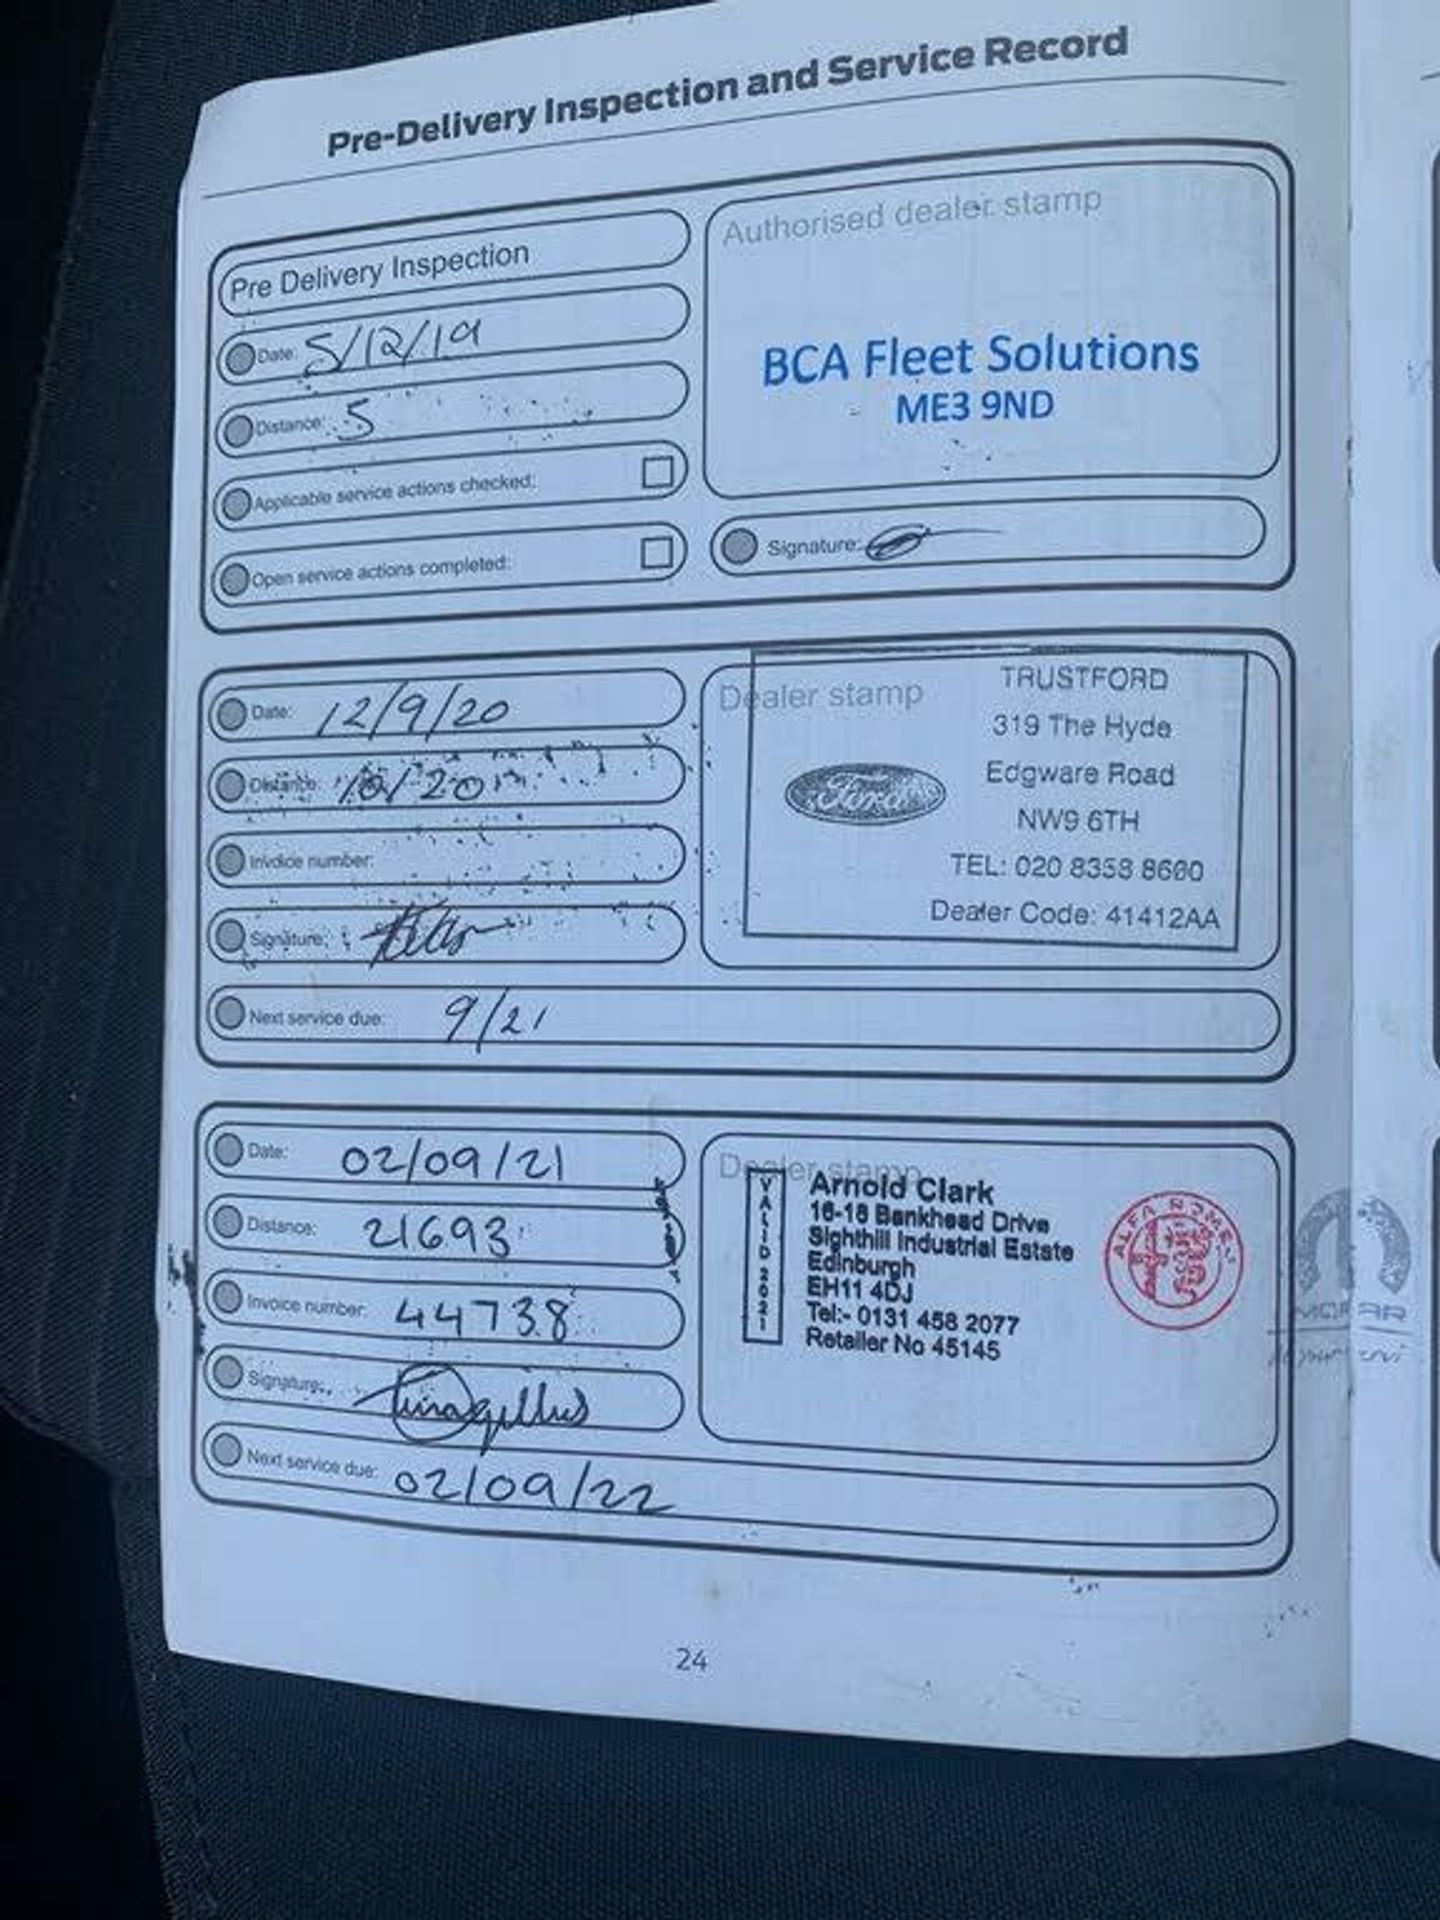 Pre-Delivery Inspection and Service Record
Pre Delivery Inspection
Date: 5/12/19
Distance: 5
Applicable service actions checked:
Open service actions completed:
Authorised dealer stamp
BCA Fleet Solutions
ME3 9ND
Signature:
Date: 12/9/20
Distance:
Invoice number:
Signature:
Next service due: 9/21
Dealer stamp
Ford
TRUSTFORD
319 The Hyde
Edgware Road
NW9 6TH
TEL: 020 8358 8600
Dealer Code: 41412AA
Date: 02/09/21
Distance: 21693
Invoice number: 44738
Signature:
Next service due: 02/09/22
Dealer stamp
VALID 2021
Arnold Clark
16-18 Bankhead Drive
Sighthill Industrial Estate
Edinburgh
EH11 4DJ
Tel:- 0131 458 2077
Retailer No 45145
ALFA ROMEO
MOPAR
24